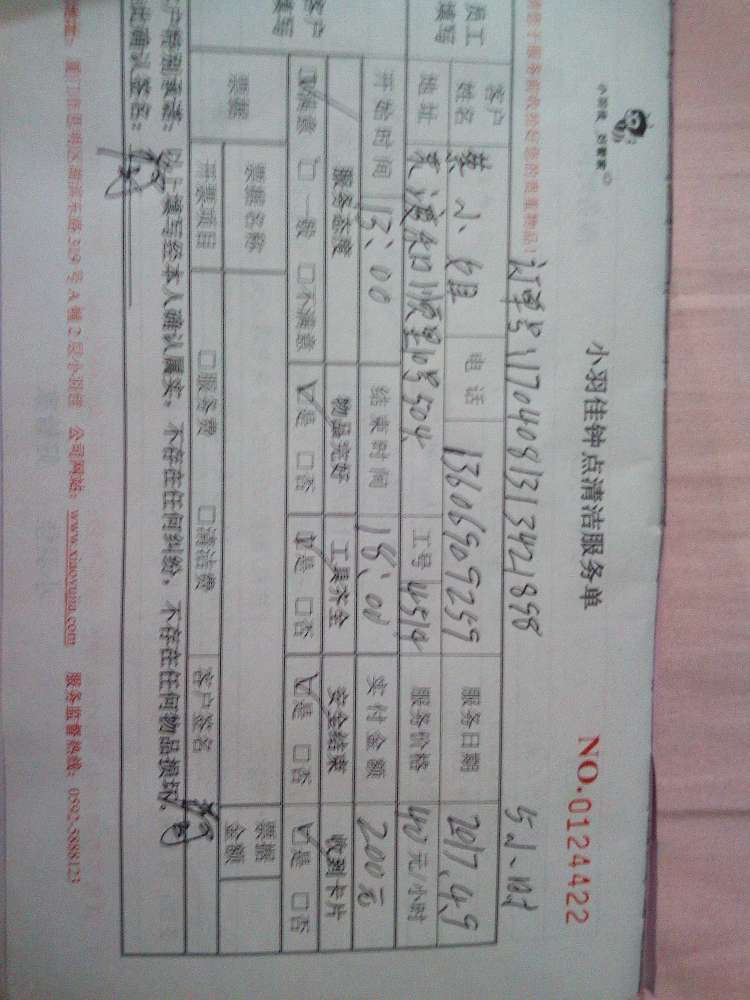 小羽佳 妙管家
小羽佳钟点清洁服务单 NO.0124422
订单号:1704081313421858 5小时
员工填写 客户姓名 蔡小姐 电话 13606909259 服务日期 2017.4.9
地址 10号504 工号 服务价格 40元/小时
开始时间 13:00 结束时间 18:00 实付金额 200元
客户填写 服务态度 物品完好 工具齐全 安全结束 收到卡片
☑满意 □一般 □不满意 ☑是 □否 ☑是 □否 ☑是 □否 ☑是 □否
票据 票据名称 票据金额
开票项目 □服务费 □清洁费 客户签名
客户特别承诺:以上填写经本人确认属实,不存在任何纠纷,不存在任何物品损坏。
确认签名:
厦门市思明区湖滨东路319号A幢2层小羽佳 公司网站:www.xiaoyujia.com 服务监督热线:0592-5888123